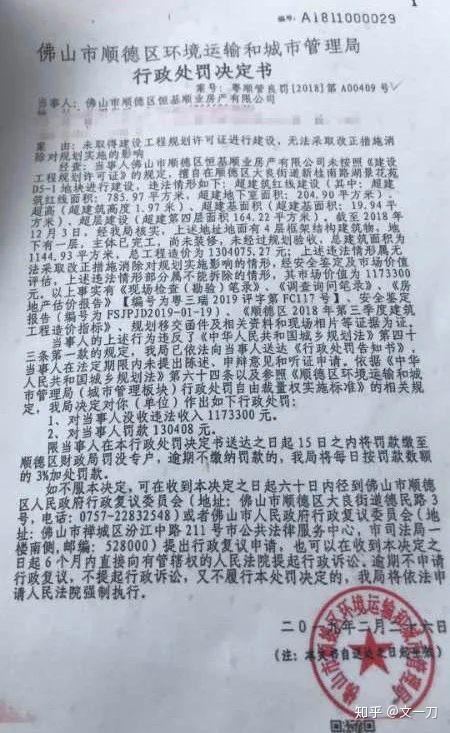 编号:A1811000029
佛山市顺德区环境运输和城市管理局
行政处罚决定书
案号:粤顺管良罚[2018]第A00409号
当事人:佛山市顺德区恒基顺业房产有限公司
案 由:未取得建设工程规划许可证进行建设,无法采取改正措施消
除对规划实施的影响
经查:当事人佛山市顺德区恒基顺业房产有限公司未按照《建设
工程规划许可证》的规定,擅自在顺德区大良街道新桂南路湖景花苑
D5-1地块进行建设,违法情形如下:超建筑红线建设(其中:超建
筑红线面积:785.97平方米,超建地下室面积:204.90平方米)、
超高(超建筑高度1.97米)、超建基底面积(超建基底面积:19.94平
方米)、超层建设(超建第四层面积164.22平方米),截至2018年
12月3日,经我局核实,上述地址地面有4层框架结构建筑物,地
下有一层,主体已完工,尚未装修,未经过规划验收,总建筑面积为
1144.93平方米,总工程造价为1304075.27元;上述违法情形属无
法采取改正措施消除对规划实施影响的情形,经安全鉴定以及市场价值
评估,上述违法情形部分属不能拆除的情形,其市场价值为1173300
元。以上事实有《现场检查(勘验)笔录》、《调查询问笔录》、《房
地产估价报告》【编号为粤三瑞2019评字第FC117号】、安全鉴定
报告(编号为FSJPJD2019-01-19)、《顺德区2018年第三季度建筑
工程造价指标》、规划移交函件及相关资料和现场相片等证据为证。
当事人的上述行为违反了《中华人民共和国城乡规划法》第四十
三条第一款的规定,我局已依法向当事人送达《行政处罚告知书》,
当事人在法定期限内未提出陈述、申辩意见和听证申请,依据《中华
人民共和国城乡规划法》第六十四条以及参照《顺德区环境运输和
城市管理局(城市管理板块)行政处罚自由裁量权实施标准》的相关规
定,我局决定对你(单位)作出如下行政处罚:
1、对当事人没收违法收入1173300元。
2、对当事人罚款130408元。
限当事人在本行政处罚决定书送达之日起15日之内将罚款缴至
顺德区财政局罚没专户,逾期不缴纳罚款的,我局将每日按罚款数额
的3%加处罚款。
如不服本决定,可在收到本决定之日起六十日内径向佛山市顺德
区人民政府行政复议委员会(地址:佛山市顺德区大良街道德民路3
号,电话:0757-22832548)或者佛山市人民政府行政复议委员会(地
址:佛山市禅城区汾江中路211号市公共法律服务中心,市司法局一
楼南侧,邮编:528000)提出行政复议申请,也可以在收到本决定之
日起6个月内直接向有管辖权的人民法院提起行政诉讼。逾期不申请
行政复议,不提起行政诉讼,又不履行本处罚决定的,我局将依法申
请人民法院强制执行。
二〇一九年二月二十六日
(注:本文书自送达之日起生效)
佛山市顺德区环境运输和城市管理局
知乎 @文一刀